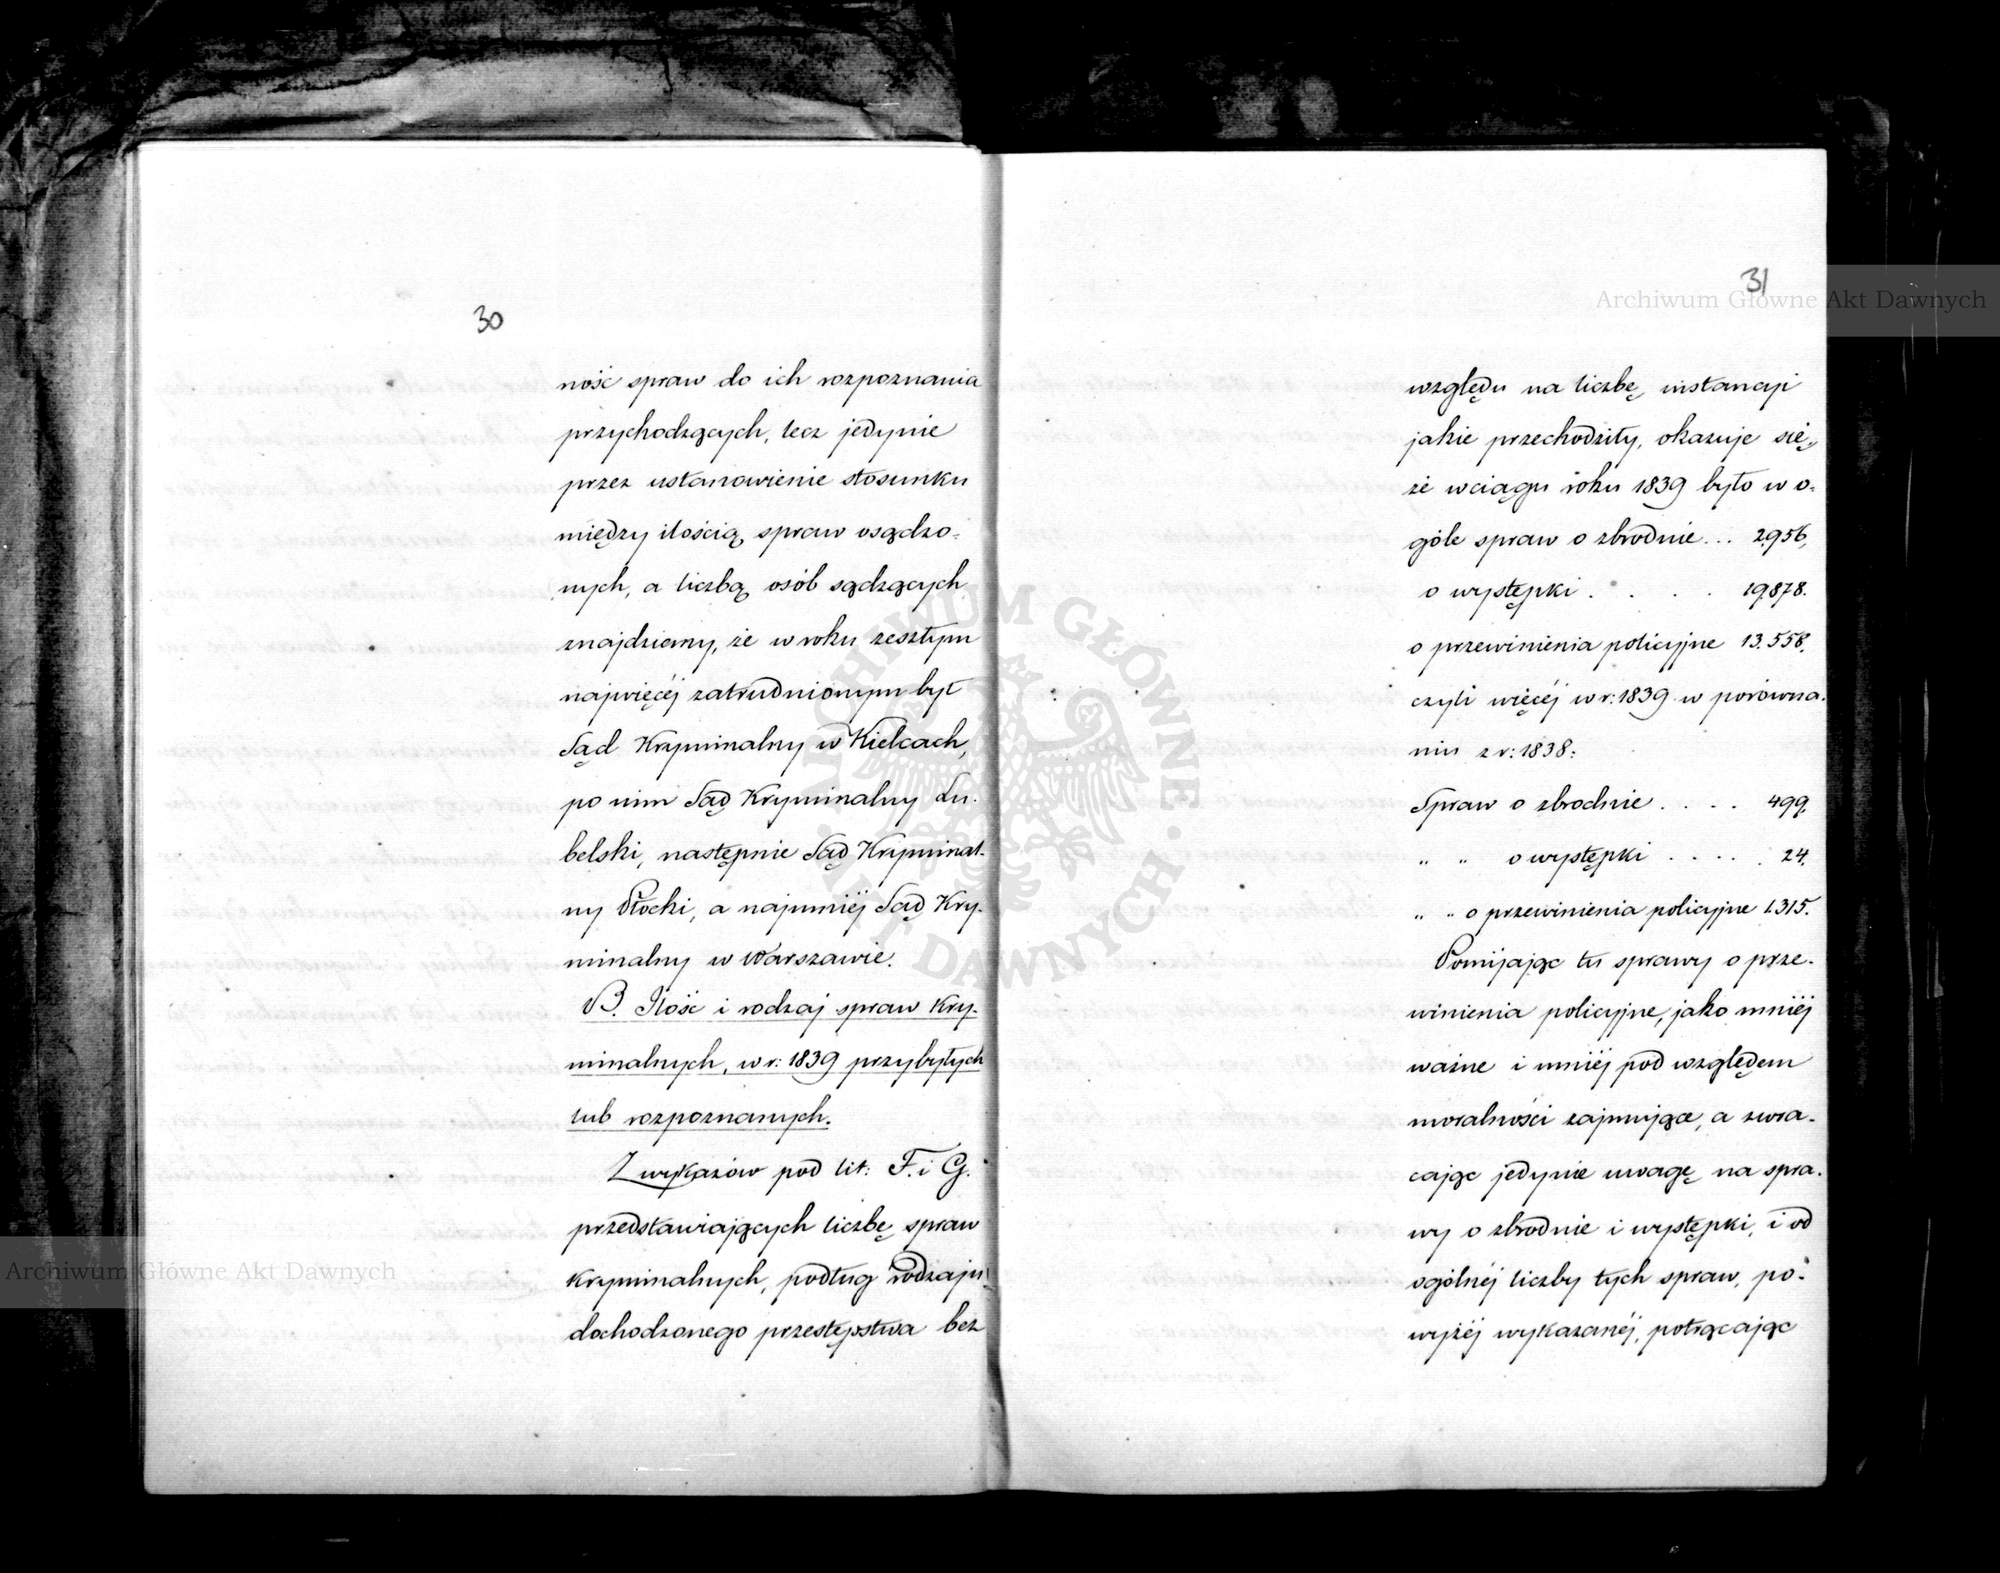 30
ność spraw do ich rozpoznania
przychodzących, lecz jedynie
przez ustanowienie stosunku
między ilością spraw osądzo-
nych, a liczbą osób sądzących
znajdziemy, że w roku zeszłym
najwięcéj zatrudnionym był
Sąd Kryminalny w Kielcach,
po nim Sąd Kryminalny Lu-
belski, następnie Sąd Kryminal-
ny Płocki, a najmniéj Sąd Kry-
minalny w Warszawie.
B. Ilość i rodzaj spraw kry-
minalnych, w r: 1839 przybyłych
lub rozpoznanych.
Z wykazów pod lit: F. i G.
przedstawiających liczbę spraw
kryminalnych, podług rodzaju
dochodzonego przestępstwa bez
31
względu na liczbę instancji
jakie przechodziły, okazuje się,
że wciągu roku 1839 było w o-
góle spraw o zbrodnie... 2,956,
o występki . . . . 19,878.
o przewinienia policyjne 13.558,
czyli więcéj w r: 1839 w porówna-
niu z r: 1838:
Spraw o zbrodnie . . . . 499,
" " o występki . . . . . 24,
" " o przewinienia policyjne 1.315.
Pomijając tu sprawy o prze-
winienia policyjne, jako mniéj
ważne i mniéj pod względem
moralności zajmujące, a zwra-
cając jedynie uwagę na spra-
wy o zbrodnie i występki, i od
ogólnéj liczby tych spraw, po-
wyżéj wykazanéj, potrącając
Archiwum Główne Akt Dawnych
Archiwum Główne Akt Dawnych
ARCHIWUM GŁÓWNE · AKT DAWNYCH ·